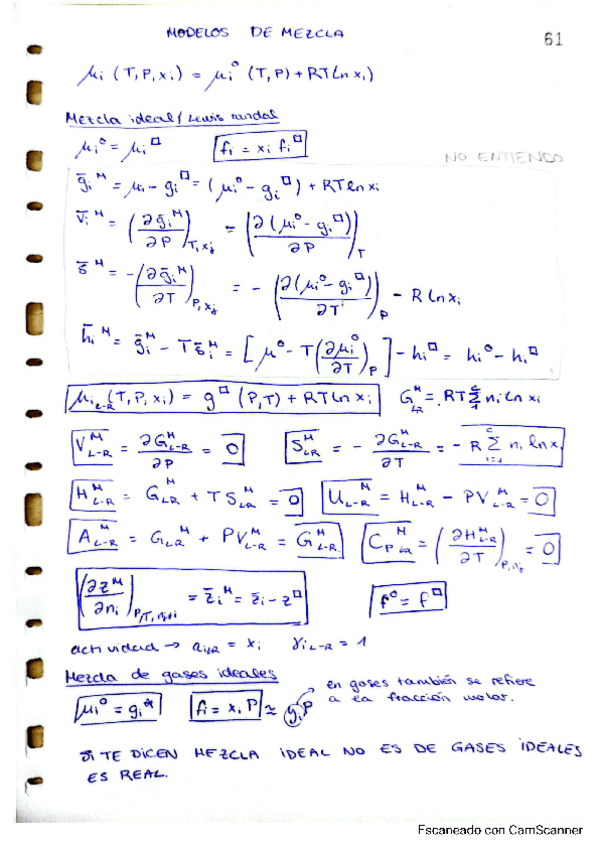 MODELOS DE MEZCLA
61
μi (T,P,xi) = μi° (T,P) + RT Ln xi)
Mezcla ideal / Lewis randal
μi° = μi□ fi = xi fi□
NO ENTIENDO
ḡi^M = μi - gi□ = (μi° - gi□) + RT ln xi
v̄i^M = (∂ḡi^M/∂P)T,xj = (∂(μi° - gi□)/∂P)T
s̄^M = -(∂ḡi^M/∂T)P,xj = - (∂(μi° - gi□)/∂T)P - R ln xi
h̄i^M = ḡi^M - T s̄i^M = [μ° - T(∂μi°/∂T)P] - hi□ = hi° - hi□
μi L-R (T,P,xi) = g□ (P,T) + RT ln xi G^M LR = RT Σ ni Ln xi
V^M L-R = ∂G^M L-R/∂P = 0 S^M LR = - ∂G^M L-R/∂T = - R Σ ni ln xi
H^M L-R = G LR^M + T S LR^M = 0 U L-R^M = H L-R^M - PV L-R^M = 0
A L-R^M = G LR^M + PV L-R^M = G L-R^M Cp LR^M = (∂H L-R^M/∂T)P,xj = 0
(∂Z^M/∂ni)P,T,nj≠i = z̄i^M = z̄i - z□ f° = f□
actividad → ai LR = xi γi L-R = 1
Mezcla de gases ideales
en gases también se refiere
μi° = gi* fi = xi P ≈ yi P a la fracción molar.
SI TE DICEN MEZCLA IDEAL NO ES DE GASES IDEALES
ES REAL.
Escaneado con CamScanner